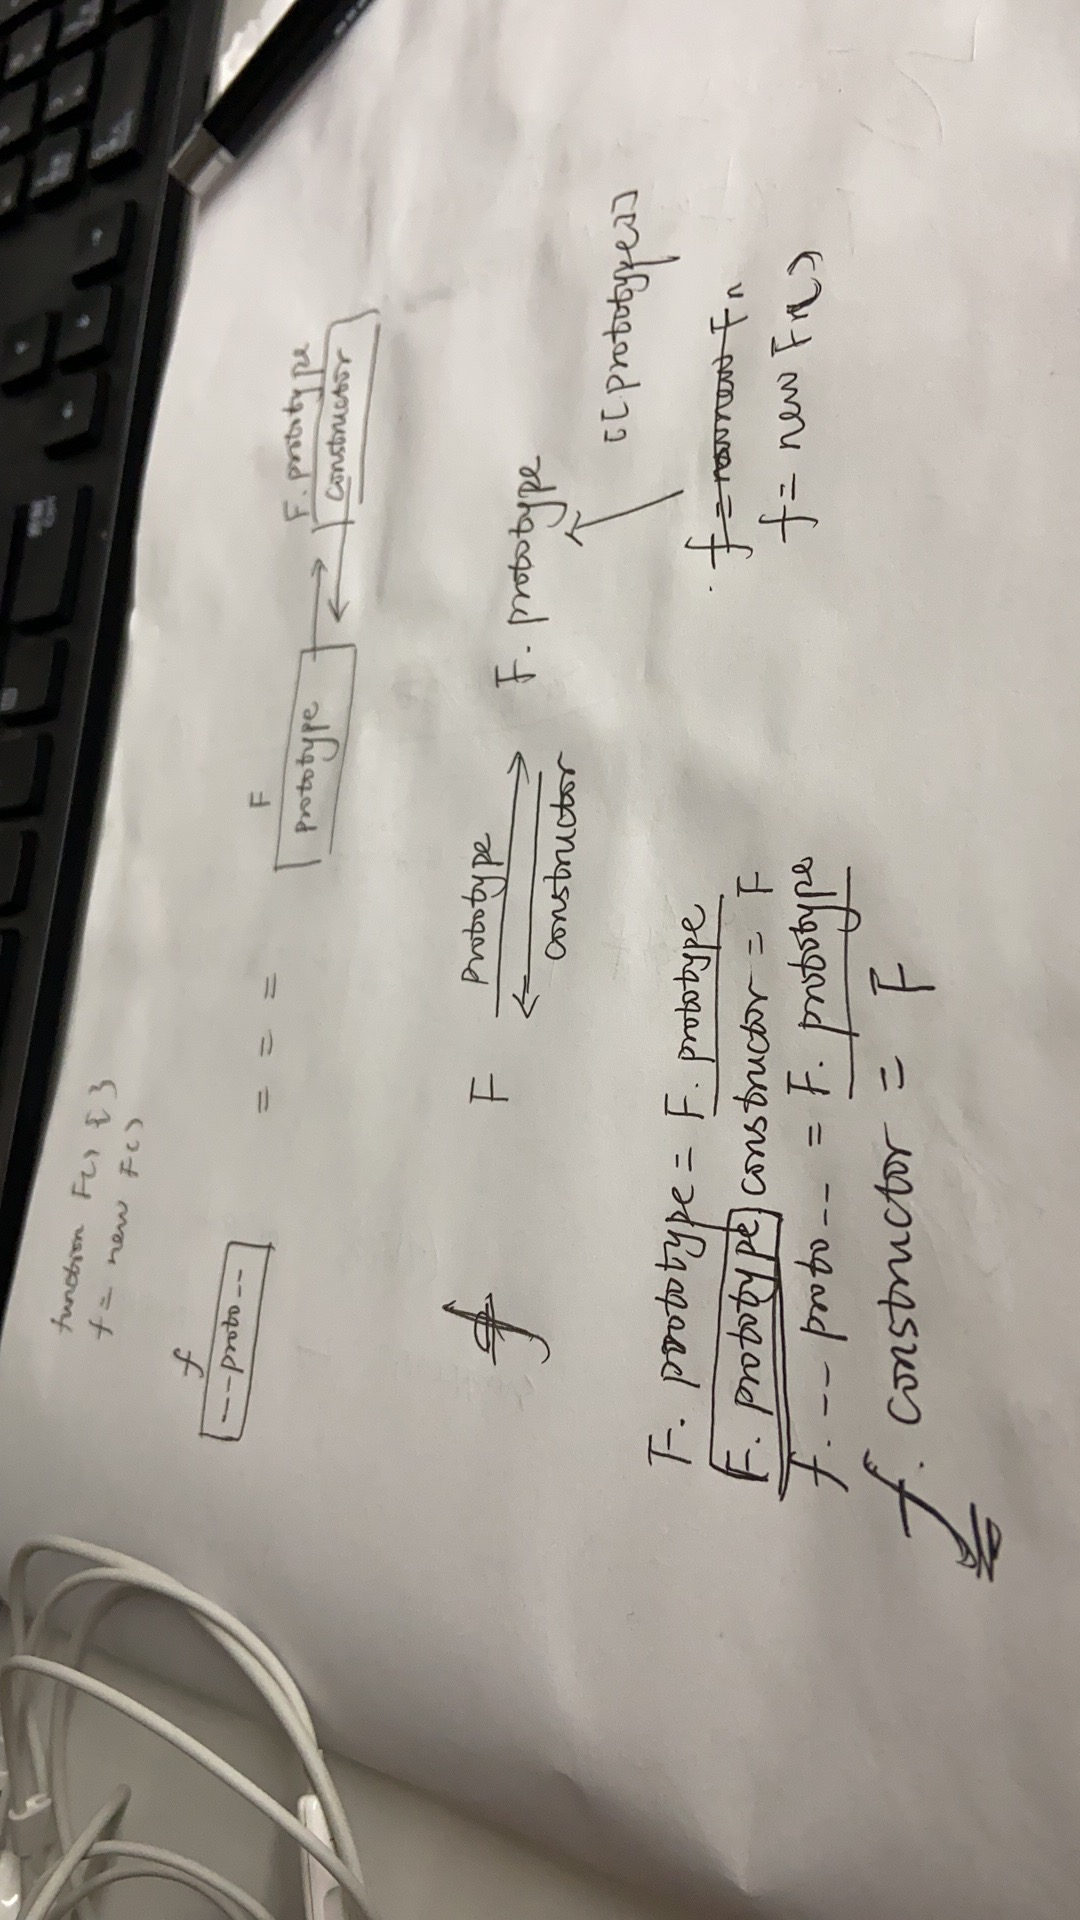 function F() { }
f = new F()
f
--proto--
= = =
F
prototype
F.prototype
constructor
F
prototype
constructor
F. prototype
[[prototype]]
F. prototype = F. prototype
F. prototype constructor = F
f. -- proto -- = F. prototype
f. constructor = F
f = new Fn
f = new Fn()